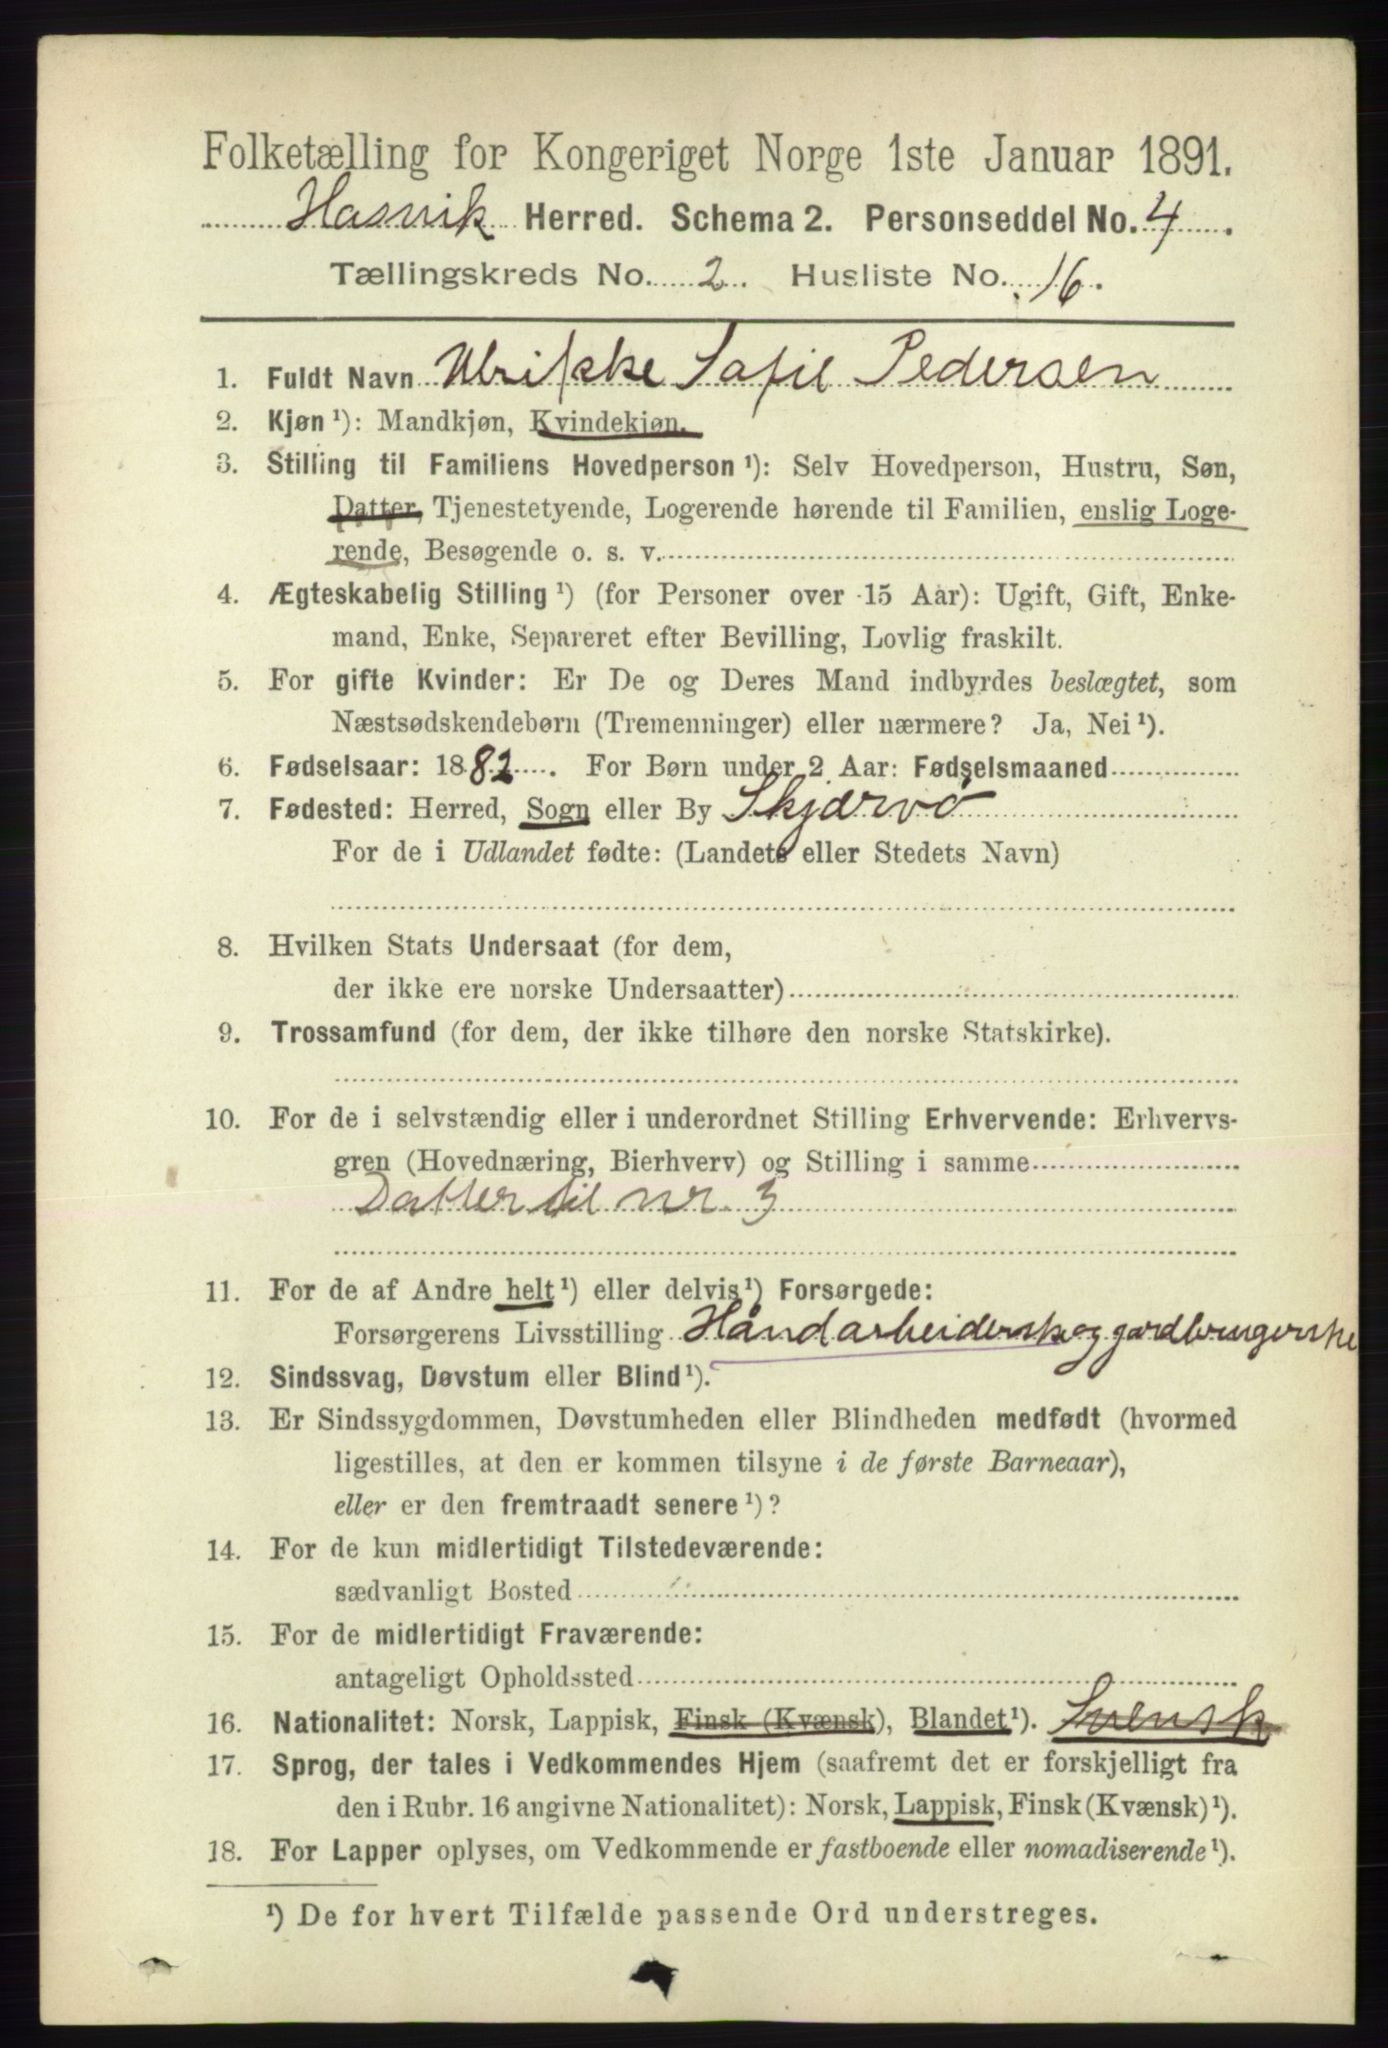 Folketælling for Kongeriget Norge 1ste Januar 1891.
Hasvik Herred. Schema 2. Personseddel No. 4.
Tællingskreds No. 2. Husliste No. 16.
1. Fuldt Navn Ulrikke Sofie Pedersen
2. Kjøn ¹): Mandkjøn, Kvindekjøn.
3. Stilling til Familiens Hovedperson ¹): Selv Hovedperson, Hustru, Søn,
Datter, Tjenestetyende, Logerende hørende til Familien, enslig Loge-
rende, Besøgende o. s. v.
4. Ægteskabelig Stilling ¹) (for Personer over 15 Aar): Ugift, Gift, Enke-
mand, Enke, Separeret efter Bevilling, Lovlig fraskilt.
5. For gifte Kvinder: Er De og Deres Mand indbyrdes beslægtet, som
Næstsødskendebørn (Tremenninger) eller nærmere? Ja, Nei ¹).
6. Fødselsaar: 1882. For Børn under 2 Aar: Fødselsmaaned
7. Fødested: Herred, Sogn eller By Skjærvö
For de i Udlandet fødte: (Landets eller Stedets Navn)
8. Hvilken Stats Undersaat (for dem,
der ikke ere norske Undersaatter)
9. Trossamfund (for dem, der ikke tilhøre den norske Statskirke).
10. For de i selvstændig eller i underordnet Stilling Erhvervende: Erhvervs-
gren (Hovednæring, Bierhverv) og Stilling i samme
Datter til nr. 3
11. For de af Andre helt ¹) eller delvis ¹) Forsørgede:
Forsørgerens Livsstilling Håndarbeiderske og gardbrugerske
12. Sindssvag, Døvstum eller Blind ¹).
13. Er Sindssygdommen, Døvstumheden eller Blindheden medfødt (hvormed
ligestilles, at den er kommen tilsyne i de første Barneaar),
eller er den fremtraadt senere ¹)?
14. For de kun midlertidigt Tilstedeværende:
sædvanligt Bosted
15. For de midlertidigt Fraværende:
antageligt Opholdssted
16. Nationalitet: Norsk, Lappisk, Finsk (Kvænsk), Blandet ¹). Svensk
17. Sprog, der tales i Vedkommendes Hjem (saafremt det er forskjelligt fra
den i Rubr. 16 angivne Nationalitet): Norsk, Lappisk, Finsk (Kvænsk) ¹).
18. For Lapper oplyses, om Vedkommende er fastboende eller nomadiserende ¹).
¹) De for hvert Tilfælde passende Ord understreges.